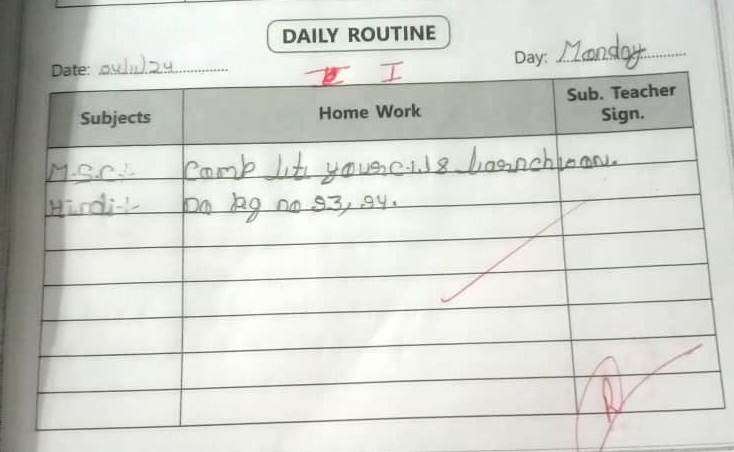 DAILY ROUTINE
Date: 04/11/24 Day: Monday
I
Subjects Home Work Sub. Teacher Sign.
M.S.C:- Comb lit your c.w & learnch
Hindi:- Do pg no 93, 94.